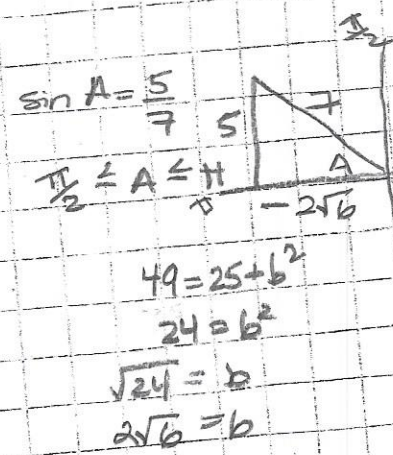 π/2
sin A = 5/7
5
7
A
π/2 ≤ A ≤ π
π
-2√6
49 = 25 + b²
24 = b²
√24 = b
2√6 = b